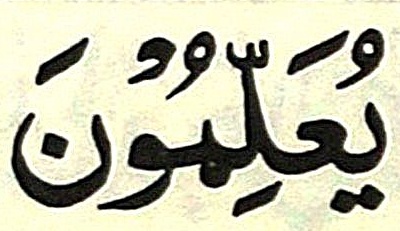 يُعَلِّمُوْنَ